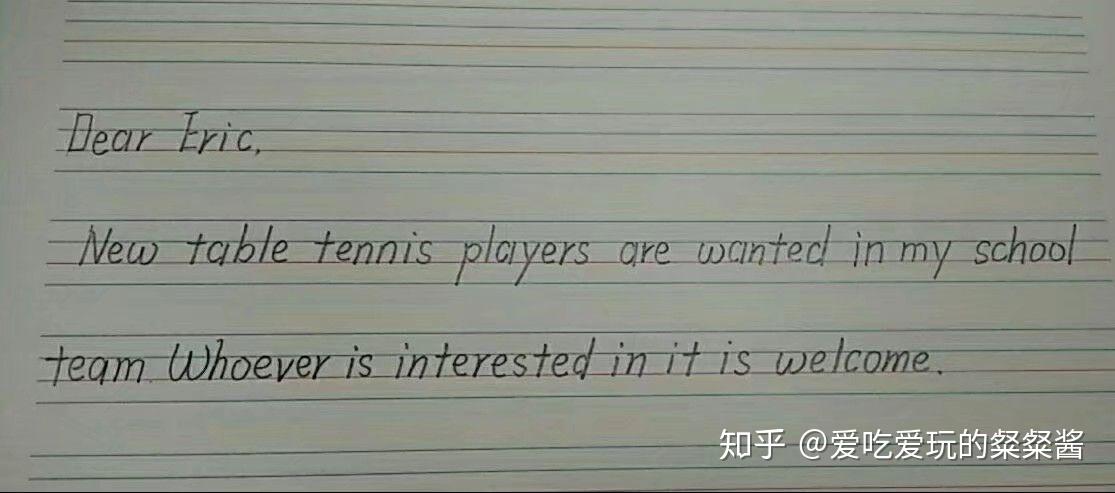 Dear Eric,
New table tennis players are wanted in my school
team. Whoever is interested in it is welcome.
知乎 @爱吃爱玩的粲粲酱